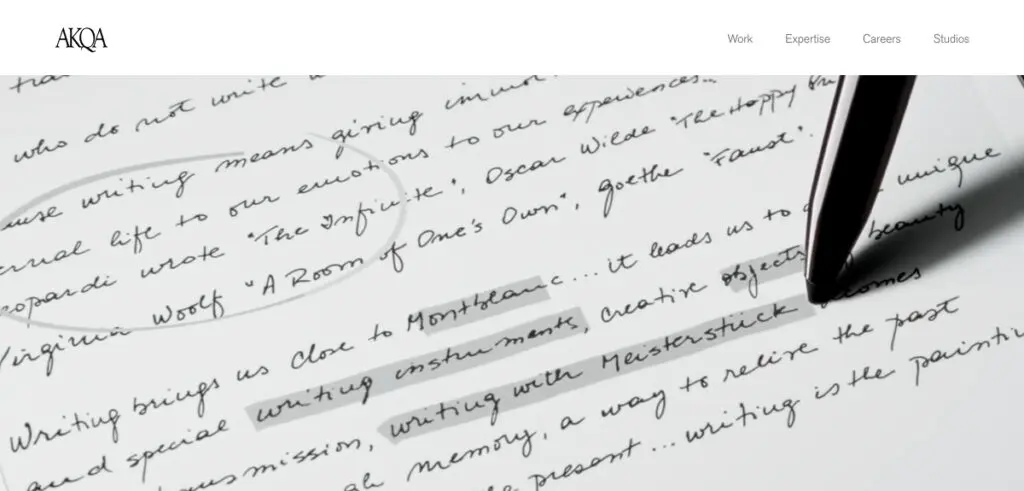 AKQA
Work Expertise Careers Studios
who do not write
writing means giving immor
life to our emotions to our experiences...
wrote "The Infinite", Oscar Wilde "The Happy Prin
Virginia Woolf "A Room of One's Own", goethe "Faust".
Writing brings us close to Montblanc... it leads us to a unique
and special writing instruments, creative objects beauty
writing with Meisterstück
memory, a way to relive the past
present... writing is the